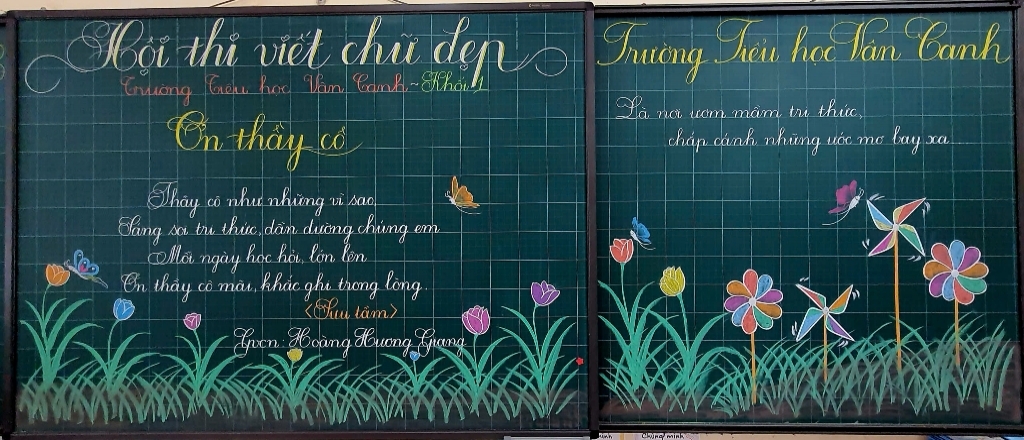 Hội thi viết chữ đẹp
Trường Tiểu học Vân Canh ~ Khối 1
Ơn thầy cô
Thầy cô như những vì sao
Sáng soi tri thức, dẫn đường chúng em
Mỗi ngày học hỏi, lớn lên
Ơn thầy cô mãi, khắc ghi trong lòng.
<Sưu tầm>
Gvcn: Hoàng Hương Giang
Trường Tiểu học Vân Canh
Là nơi ươm mầm tri thức,
chắp cánh những ước mơ bay xa...
Chứng minh